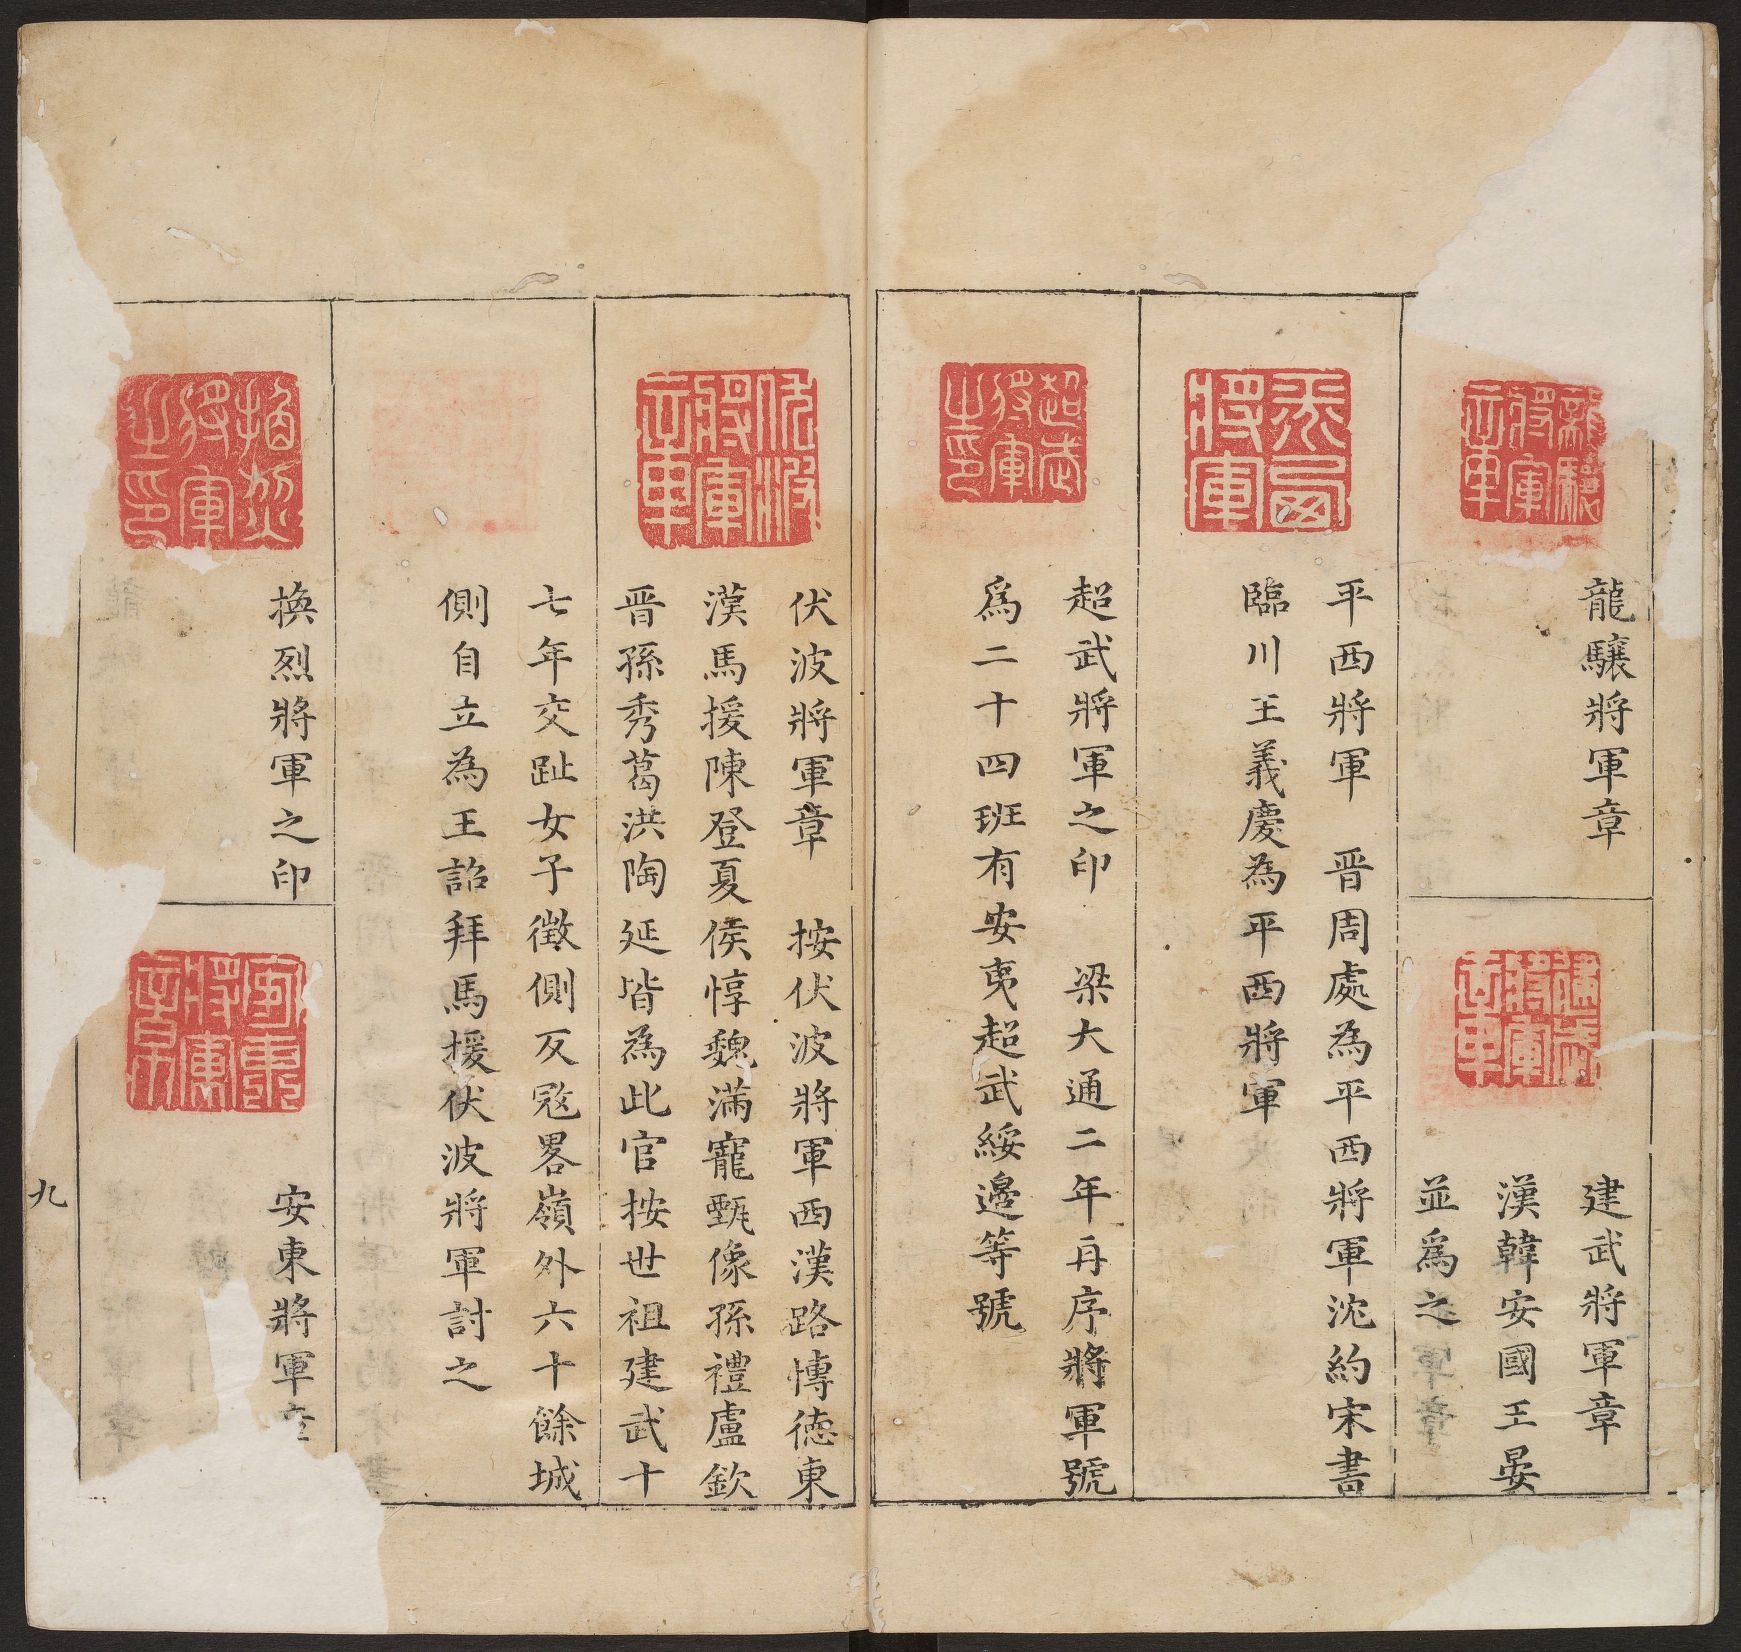 龍驤將軍章
建武將軍章
漢韓安國王晏
並爲之
平西將軍　晋周處為平西將軍沈約宋書
臨川王義慶為平西將軍
超武將軍之印　梁大通二年再序將軍號
爲二十四班有安夷超武綏邊等號
伏波將軍章　按伏波將軍西漢路慱德東
漢馬援陳登夏侯惇魏滿寵甄像孫禮盧欽
晋孫秀葛洪陶延皆為此官按世祖建武十
七年交趾女子徵側反冦畧嶺外六十餘城
側自立為王詔拜馬援伏波將軍討之
換烈將軍之印
安東將軍
九